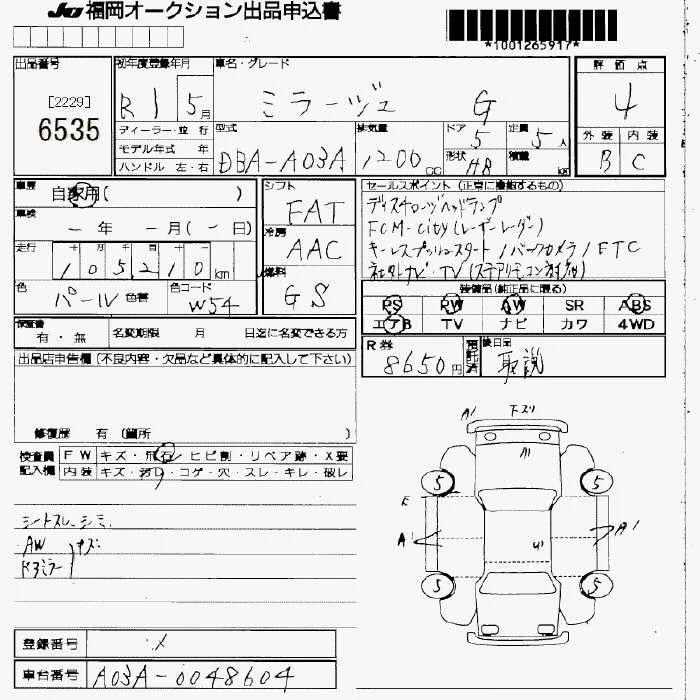 JU 福岡オークション出品申込書
*1001265917*
出品番号 初年度登録年月 車名・グレード 評価点
[2229]
6535
R1 5月 ミラージュ G 4
ディーラー・並行 型式 排気量 ドア 定員 外装 内装
モデル年式 年 DBA-A03A 1200CC 5 5人 B C
ハンドル 左・右 形状 HB 積載 kg
車歴 自家用( ) シフト FAT セールスポイント (正常に機能するもの)
車検 -年 -月(-日) 冷房 AAC ディスチャージヘッドランプ
FCM-City(レーザーレーダー)
走行 十 万 千 百 十 一 キーレスプッシュスタート/バックカメラ/ETC
105,210km 燃料 GS ナビ・TV(ステアリモコン
色 パール 色替 色コード W54 装備品(純正品に限る)
PS PW AW SR ABS
エアB TV ナビ カワ 4WD
保証書 有・無 名変期限 月 日迄に名変できる方
R券 8650円 預託済 後日品 取説
出品店申告欄 (不良内容・欠品など具体的に記入して下さい)
修復歴 有 (箇所 )
検査員記入欄 FW キズ・飛石・ヒビ割・リペア跡・X要
内装 キズ・汚れ・コゲ・穴・スレ・キレ・破レ
シートスレ シミ
AW
ドアミラー キズ
A1 下スリ
A1
5 5
E
A1 A1
U1
5 5
登録番号 ・メ
車台番号 A03A-0048604